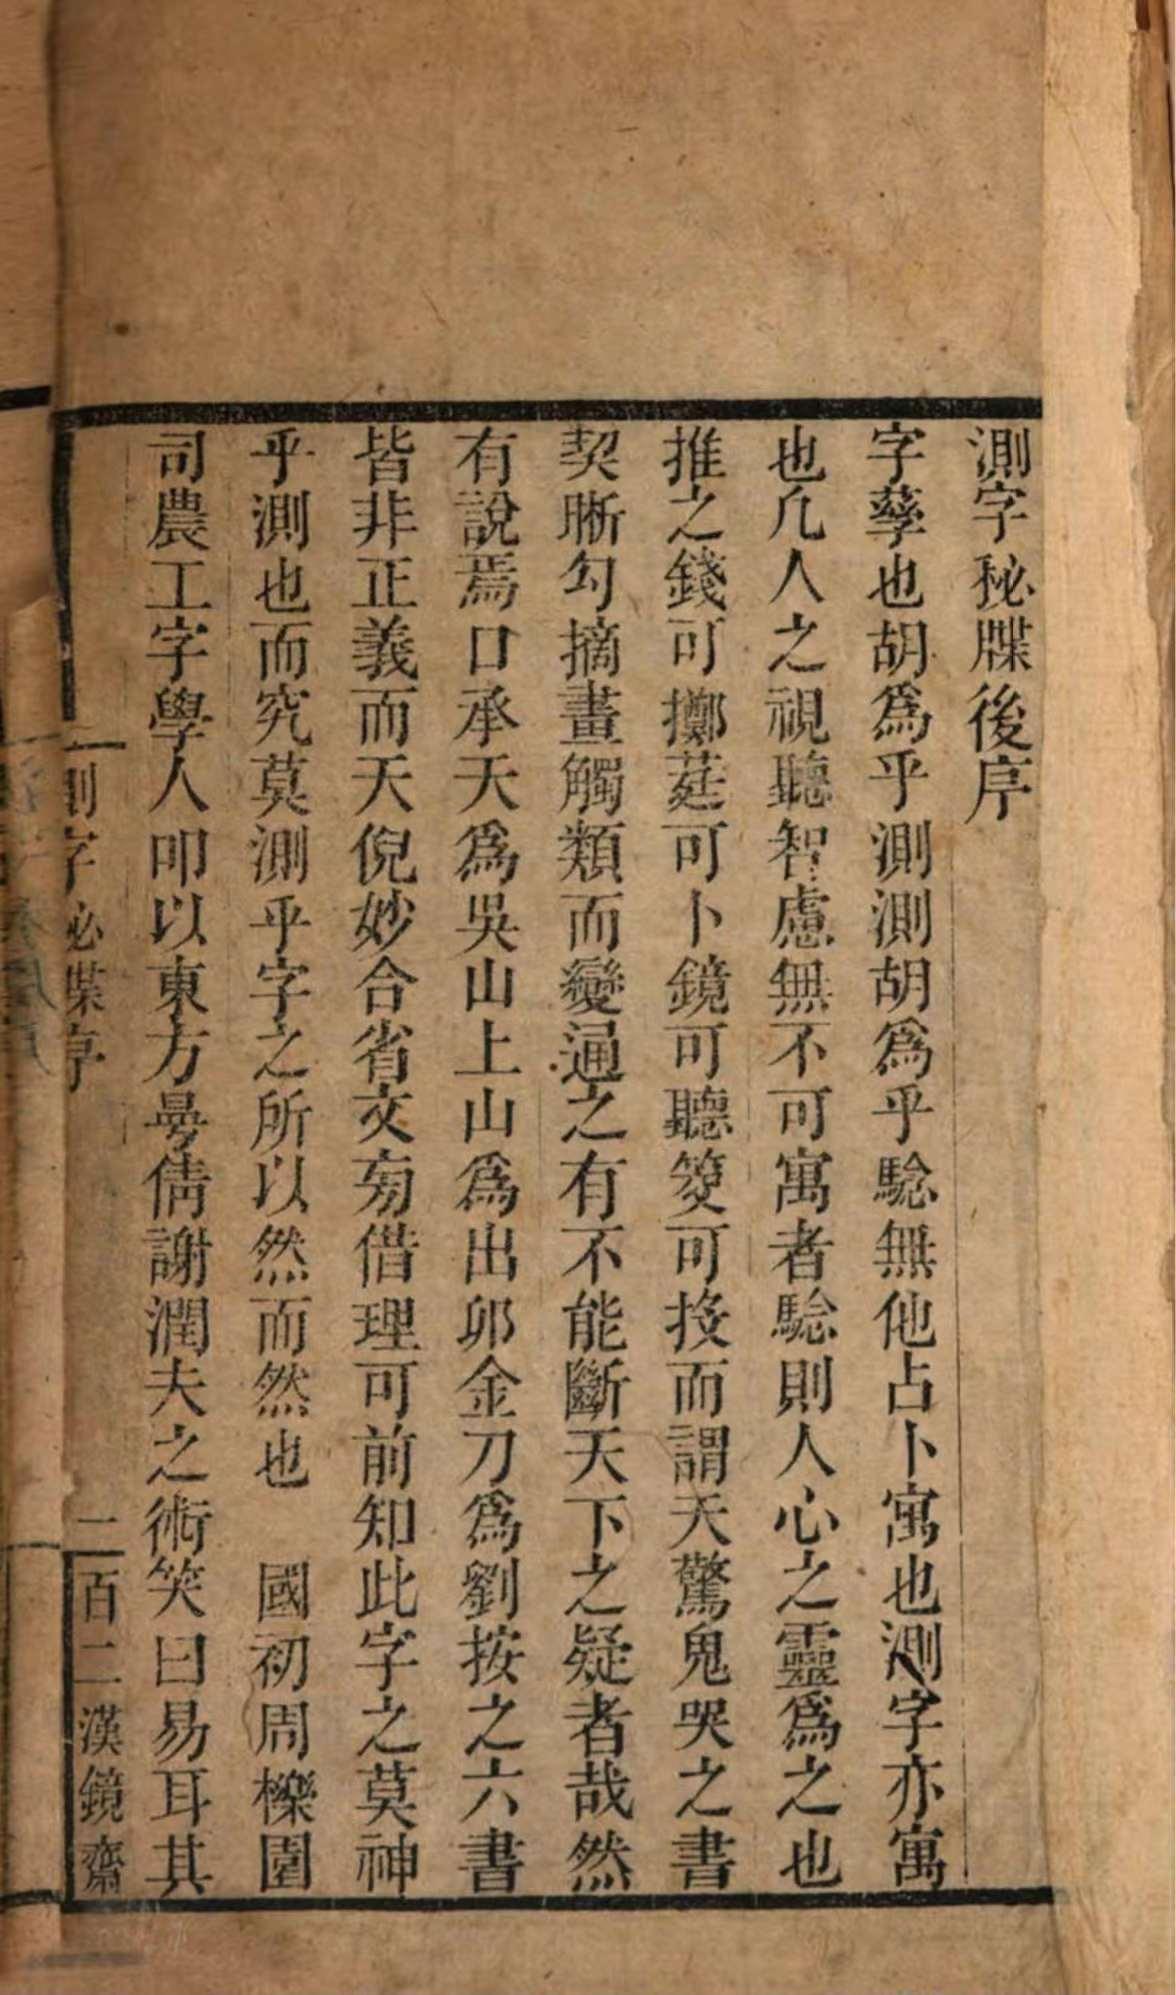 測字秘牒後序
字孳也胡爲乎測測胡爲乎騐無他占卜寓也測字亦寓
也凢人之視聽智慮無不可寓者騐則人心之靈爲之也
推之錢可擲莛可卜鏡可聽筊可投而謂天驚鬼哭之書
契晰勾摘畫觸類而變通之有不能斷天下之疑者哉然
有說焉口承天爲吳山上山爲出卯金刀爲劉按之六書
皆非正義而天倪妙合省文旁借理可前知此字之莫神
乎測也而究莫測乎字之所以然而然也　國初周櫟園
司農工字學人叩以東方曼倩謝潤夫之術笑曰易耳其
測字秘牒序
二百二漢鏡齋